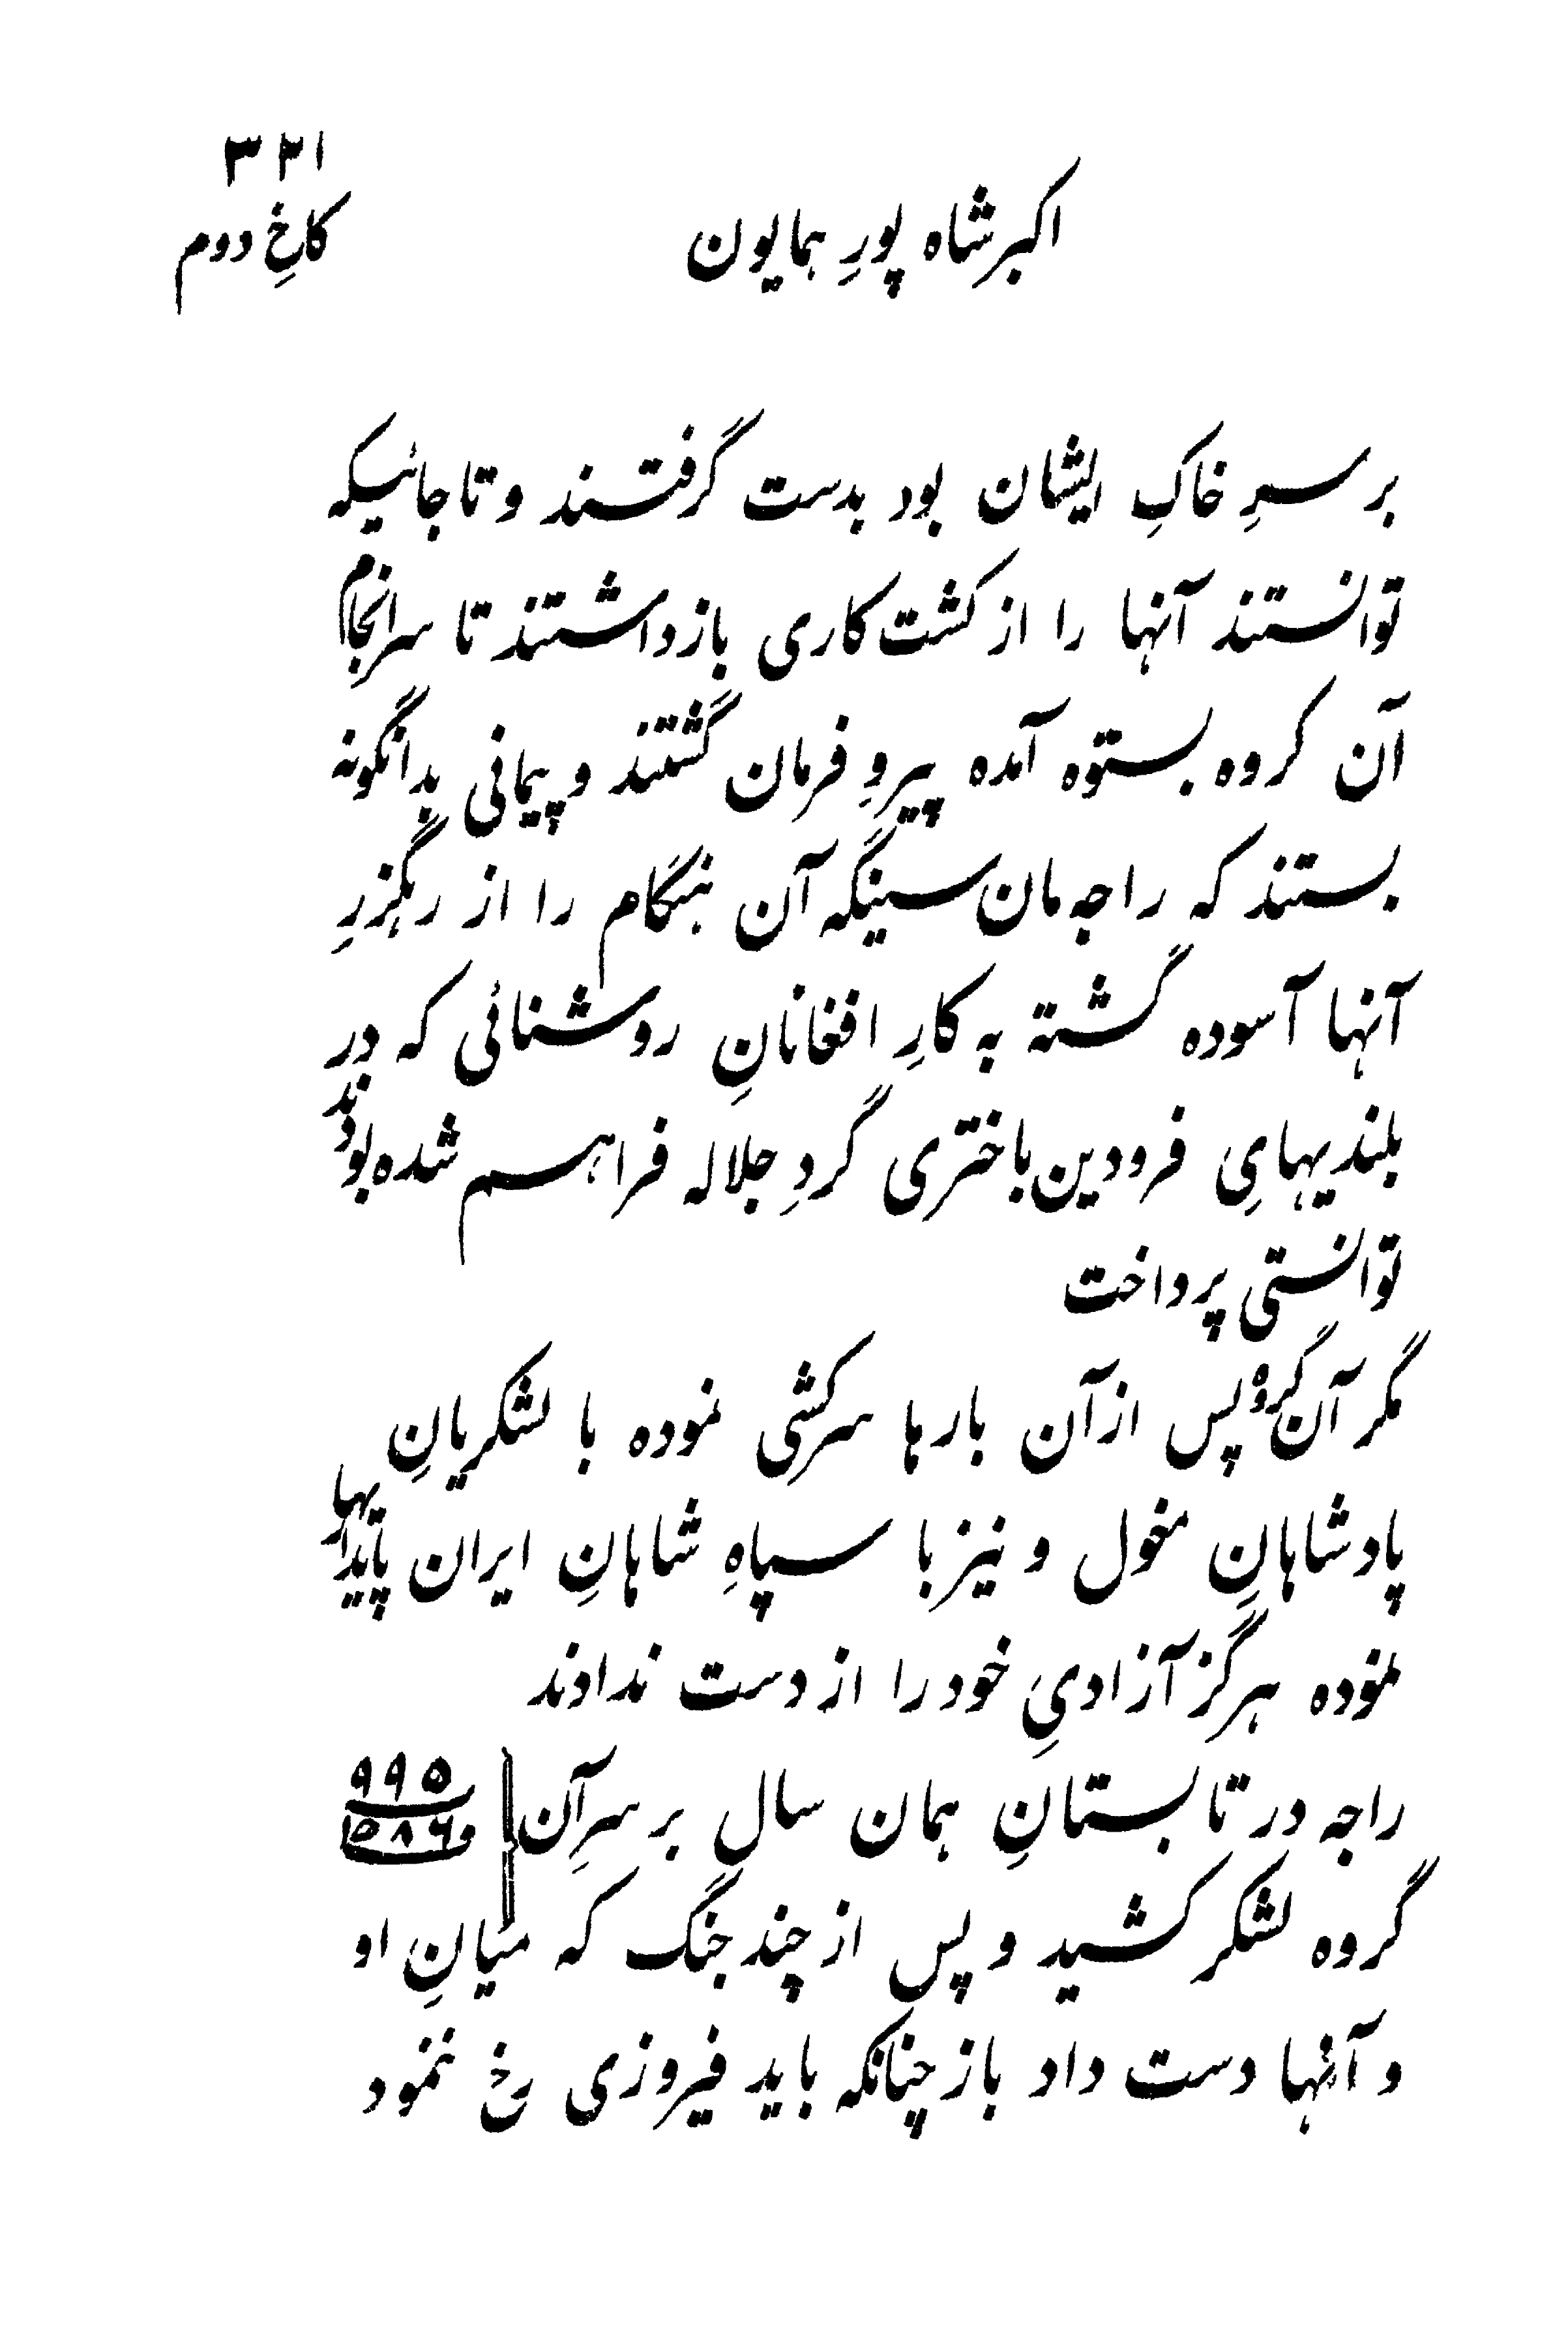 ۳۲۱
کاخِ دوم
اکبر شاه پورِ همایون
بر سرِ خاکِ ایشان بود بدست گرفتند و تا جائیکه
توانستند آنها را از کشت کاری بازداشتند تا سرانجام
آن گروه بستوه آمده پیروِ فرمان گشتند و پیمانی بدانگونه
بستند که راجه مان سینگه آن هنگام را از رهگزرِ
آنها آسوده گشته به کارِ افغانانِ روشنائی که در
بلندیهایِ فرودین باختری گردِ جلاله فراهم شده بودند
توانستی پرداخت
مگر آن گروه پس ازآن بارها سرکشی نموده با لشکریانِ
پادشاهانِ مغول و نیز با سپاهِ شاهانِ ایران پایداریها
نموده هرگز آزادیِ خود را از دست ندادند
راجه در تابستانِ همان سال بر سرِ آن ۹۹۵ و ۱۵۸۶
گروه لشکر کشید و پس از چند جنگ که میانِ او
و آنها دست داد باز چنانکه باید فیروزی رخ ننمود